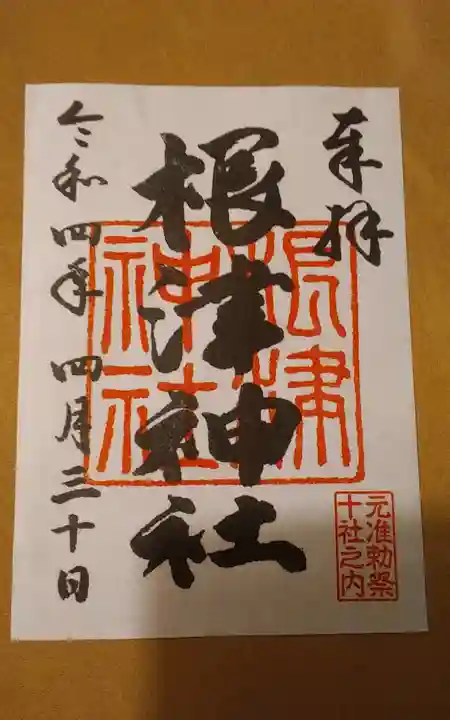 奉拝
根津神社
根津神社
元准勅祭
十社之内
令和四年四月三十日